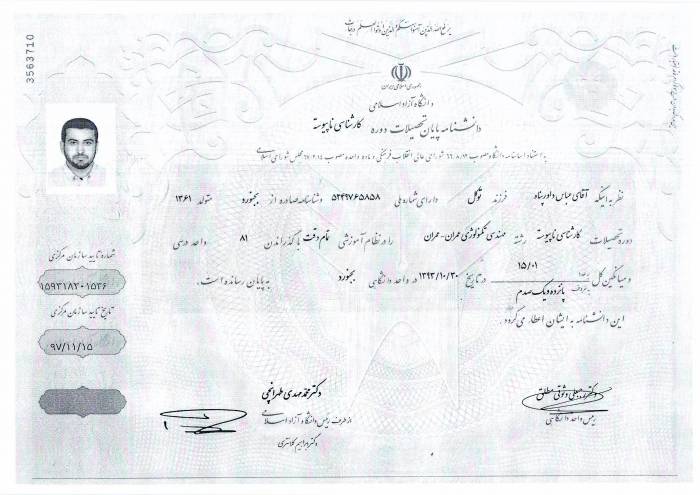 یرفع الله الذین آمنوا منکم والذین اوتوا العلم درجات
3563710
جمهوری اسلامی ایران
دانشگاه آزاد اسلامی
دانشنامه پایان تحصیلات دوره کارشناسی ناپیوسته
به استناد اساسنامه دانشگاه مصوب شورای عالی انقلاب فرهنگی و ماده واحده مصوب مجلس شورای اسلامی
نظر به اینکه آقای عباس داورپناه فرزند توکل دارای شماره ملی ۵۲۴۹۷۶۵۸۵۸ و شناسنامه صادره از بجنورد متولد ۱۳۶۱
دوره تحصیلات کارشناسی ناپیوسته رشته مهندسی تکنولوژی عمران-عمران را در نظام آموزشی تمام وقت با گذراندن ۸۱ واحد درسی
و میانگین کل به عدد ۱۵/۰۱ به حروف پانزده و یک صدم در تاریخ ۱۳۹۳/۱۰/۳۰ در واحد دانشگاهی بجنورد به پایان رسانده است.
این دانشنامه به ایشان اعطاء می‌گردد.
شماره تایید سازمان مرکزی
۱۵۹۳۱۸۲۰۱۵۳۶
تاریخ تایید سازمان مرکزی
۹۷/۱۱/۱۵
دکتر محمد مهدی طهرانچی
از طرف رئیس دانشگاه آزاد اسلامی
دکتر ابراهیم کلانتری
وثوقی مطلق
رئیس واحد دانشگاهی